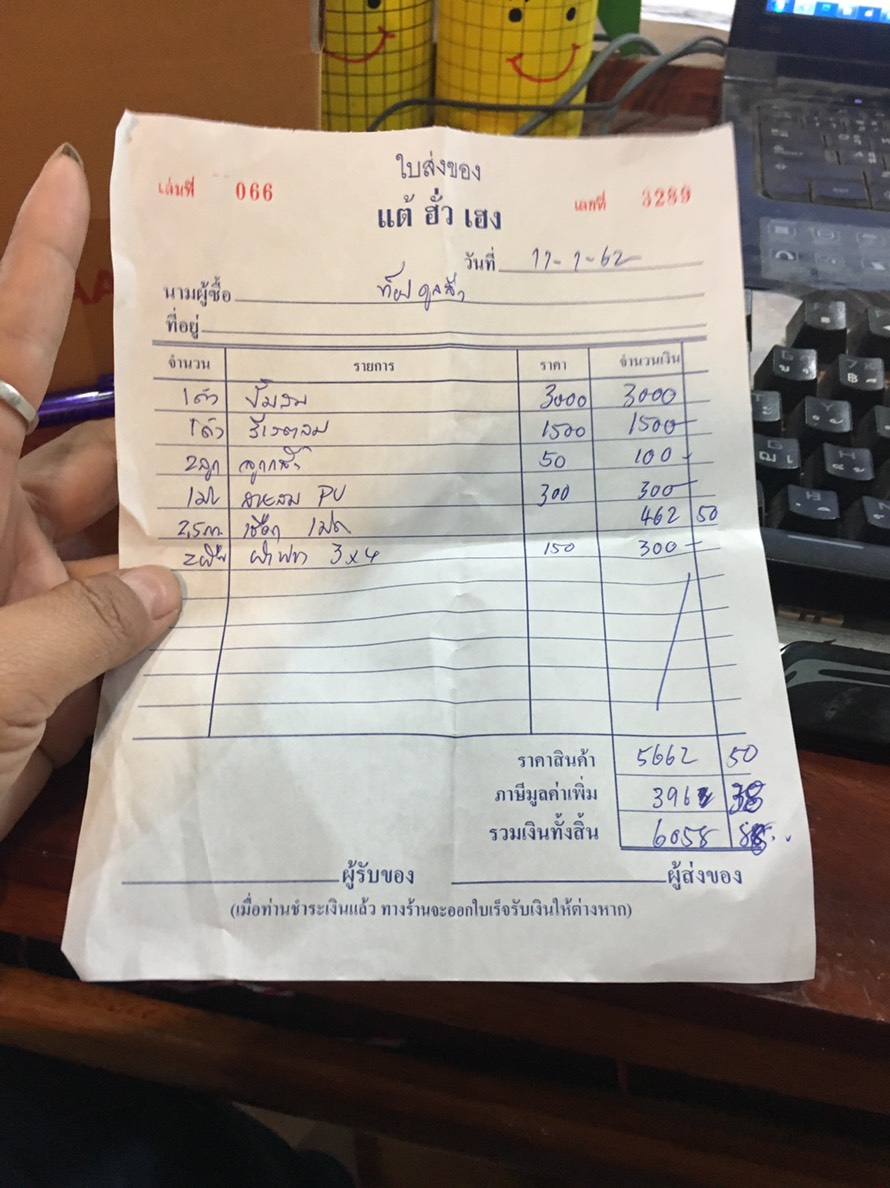 ใบส่งของ
เล่มที่ 066
แต้ ฮั่ว เฮง
เลขที่ 3289
วันที่ 11-1-62
นามผู้ซื้อ
ที่อยู่
จำนวน รายการ ราคา จำนวนเงิน
1 ตัว ปั๊มลม 3000 3000
1 ตัว 1500 1500 -
2 ลูก 50 100 -
สายลม PU 300 300 -
2,5 m. เชือก 462 50
2 ผืน ผ้าฟาง 3x4 150 300 -
ราคาสินค้า 5662 50
ภาษีมูลค่าเพิ่ม 396 38
รวมเงินทั้งสิ้น 6058 88
ผู้รับของ ผู้ส่งของ
(เมื่อท่านชำระเงินแล้ว ทางร้านจะออกใบเร็จรับเงินให้ต่างหาก)